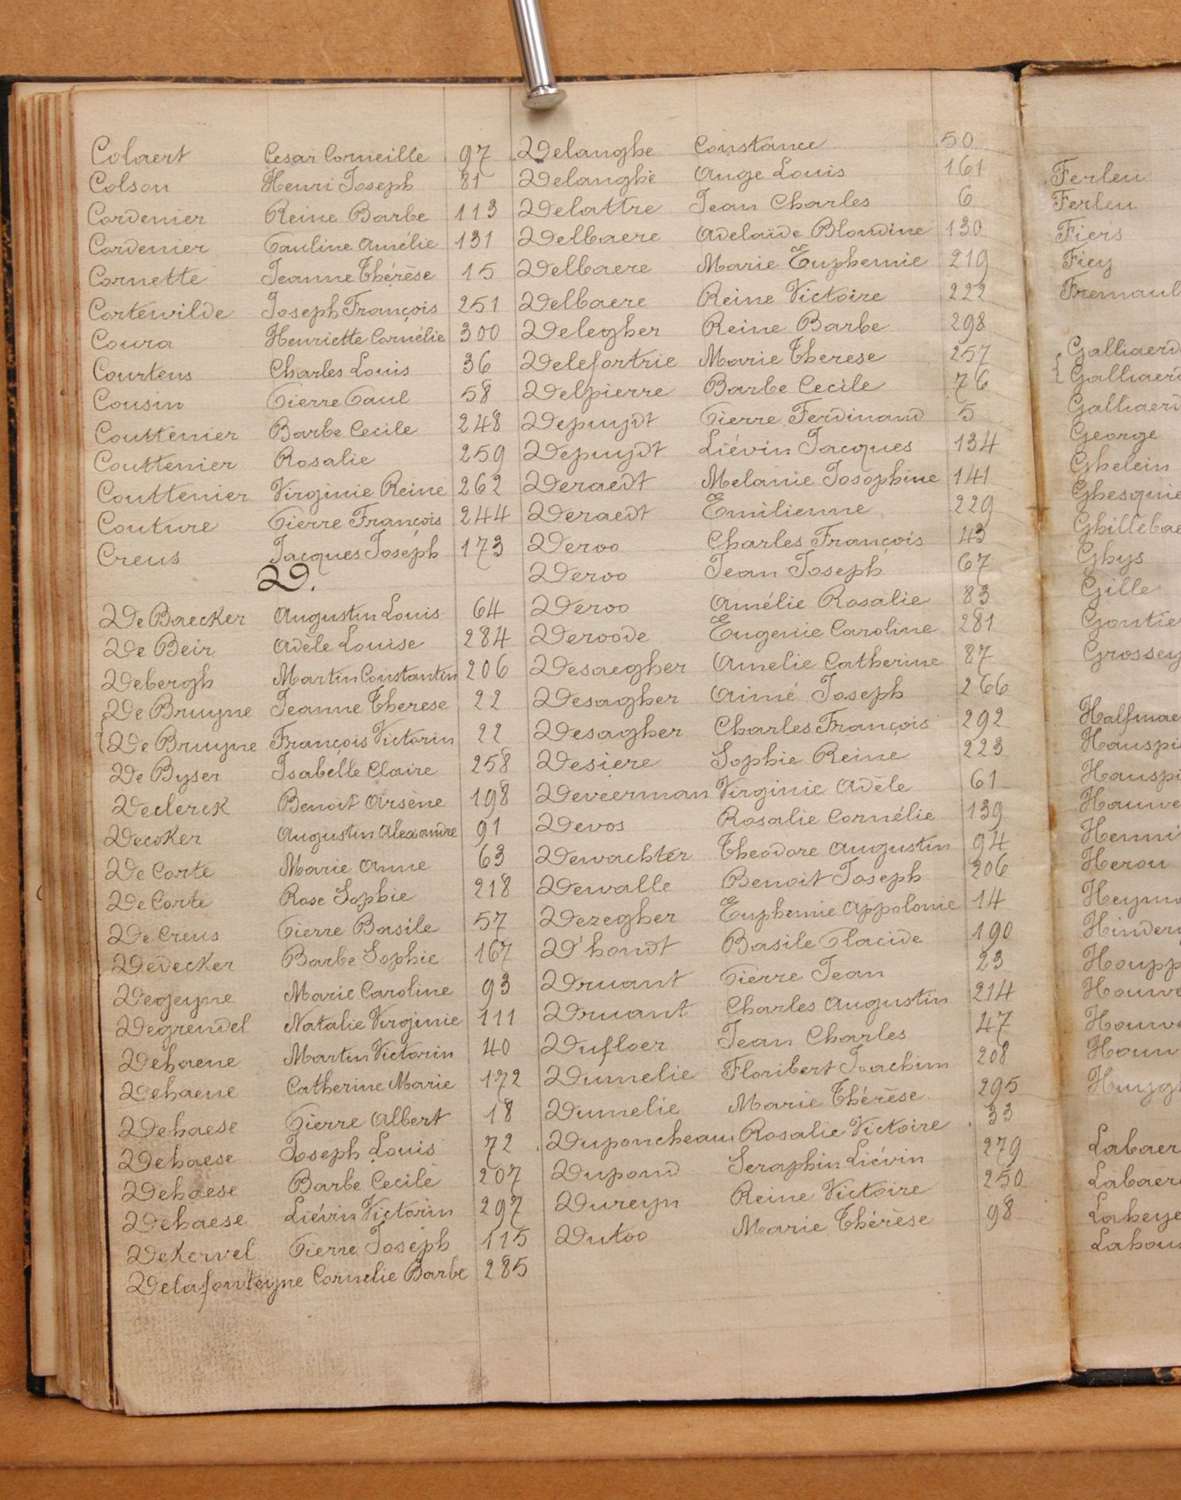 Colaert Cesar Corneille 97
Colson Henri Joseph 81
Cordenier Reine Barbe 113
Cordenier Pauline Amélie 131
Cornette Jeanne Thérèse 15
Cortewilde Joseph François 251
Coura Henriette Cornélie 300
Courtens Charles Louis 36
Cousin Pierre Paul 58
Couttenier Barbe Cecile 248
Couttenier Rosalie 259
Couttenier Virginie Reine 262
Couture Pierre François 244
Creus Jacques Joseph 173
D.
De Baecker Augustin Louis 64
De Beir Adèle Louise 284
Debergh Martin Constantin 206
De Bruyne Jeanne Therese 22
De Bruyne François Victorin 22
De Byser Isabelle Claire 258
Declerck Benoit Arsène 198
Decoker Augustin Alexandre 91
De Corte Marie Anne 63
De Corte Rose Sophie 218
De Creus Pierre Basile 57
Dedecker Barbe Sophie 167
Degeyne Marie Caroline 93
Degrendel Natalie Virginie 111
Dehaene Martin Victorin 40
Dehaene Catherine Marie 172
Dehaese Pierre Albert 18
Dehaese Joseph Louis 72
Dehaese Barbe Cecile 207
Dehaese Liévin Victorin 297
DeKervel Pierre Joseph 115
Delafonteyne Cornelie Barbe 285
Delanghe Constance 50
Delanghe Ange Louis 161
Delattre Jean Charles 6
Delbaere Adelaïde Blondine 130
Delbaere Marie Euphemie 219
Delbaere Reine Victoire 222
Delegher Reine Barbe 298
Delefortrie Marie Therese 257
Delpierre Barbe Cecile 76
Depuydt Pierre Ferdinand 5
Depuydt Liévin Jacques 134
Deraedt Melanie Josophine 141
Deraedt Emilienne 229
Deroo Charles François 43
Deroo Jean Joseph 67
Deroo Amélie Rosalie 83
Deroode Eugenie Caroline 281
Desaegher Amelie Catherine 87
Desagher Aimé Joseph 266
Desagher Charles François 292
Desiere Sophie Reine 223
Deveerman Virginie Adèle 61
Devos Rosalie Cornélie 139
Dewachter Theodore Augustin 94
Dewalle Benoit Joseph 206
Dezegher Euphemie Appolonie 14
D'hondt Basile Placide 190
Druant Pierre Jean 23
Druant Charles Augustin 214
Dufloer Jean Charles 47
Dumelie Floribert Joachim 208
Dumelie Marie Thérèse 295
Duponcheau Rosalie Victoire 33
Dupond Seraphin Liévin 279
Dureyn Reine Victoire 250
Dutoo Marie Thérèse 98
Ferleu
Ferleu
Fiers
Fiey
Fremaul
Galliaerd
Galliaerd
Galliaerd
George
Ghelein
Ghesquie
Ghillebae
Ghys
Gille
Gontie
Grossey
Halfmae
Hauspi
Hauspi
Hauwe
Henni
Herou
Heyma
Hinderi
Houpp
Houwe
Houwe
Houn
Huygh
Labaer
Labaer
Labeye
Lahou